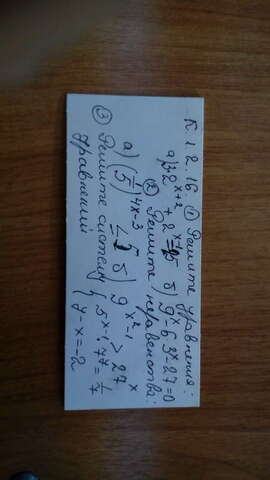 К. 1. 2. 16 ① Решите уравнения:
а) 2^{x+2} + 2^{x-1} = 5 б) 9^x - 6·3^x - 27 = 0
② Решите неравенства:
а) (1/5)^{4x-3} ≤ 5 б) 9^{x^2-1} > 27^x
③ Решите систему { 5^x - 1·7^y = 1/7
уравнений y - x = -2